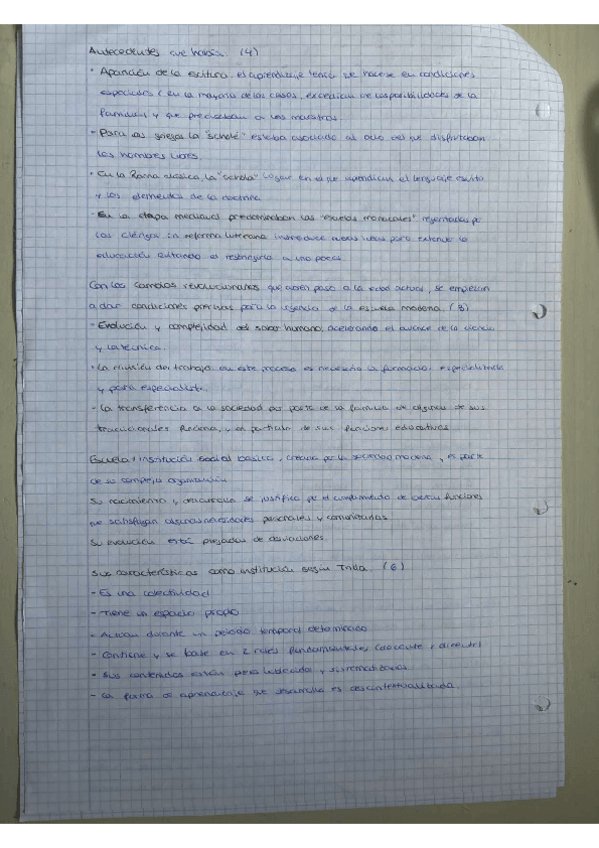 Antecedentes que había: (4)
· Aparición de la escritura, el aprendizaje tenía que hacerse en condiciones
especiales (en la mayoría de los casos, excedían de las posibilidades de la
familia) y que precisaban a unos maestros.
- Para los griegos la "scholé" estaba asociado al ocio del que disfrutaban
los hombres libres.
· En la Roma clásica, la "schola" lugar en el que aprendían el lenguaje escrito
y los elementos de la doctrina
- En la etapa medieval predominaban las "escuelas monacales" regentadas por
los clérigos. La reforma luterana introduce nuevas ideas para extender la
educación evitando restringirla a unos pocos.
Con los cambios revolucionarios, que dieron paso a la edad actual, se empiezan
a dar condiciones previas para la vigencia de la escuela moderna. (3)
- Evolución y complejidad del saber humano, acelerando el avance de la ciencia
y la técnica.
· La división del trabajo, en este proceso es necesario la formación especializada
y para especialista.
- La transferencia a la sociedad por parte de la familia de algunas de sus
tradicionales funciones, y en particular de sus funciones educativas.
Escuela: institución social básica, creada por la sociedad moderna, es parte
de su compleja organización
Su nacimiento y desarrollo se justifica por el cumplimiento de ciertas funciones
que satisfagan algunas necesidades personales y comunitarias.
Su evolución está plagada de desviaciones.
Sus características como institución según Trilla. (6)
- Es una colectividad
- Tiene un espacio propio
- Actúan durante un período temporal determinado
- Contiene y se base en 2 roles fundamentales (docente y discente)
- Sus contenidos están preestablecidos y sistematizados.
- La forma de aprendizaje que desarrolla es descontextualizada.